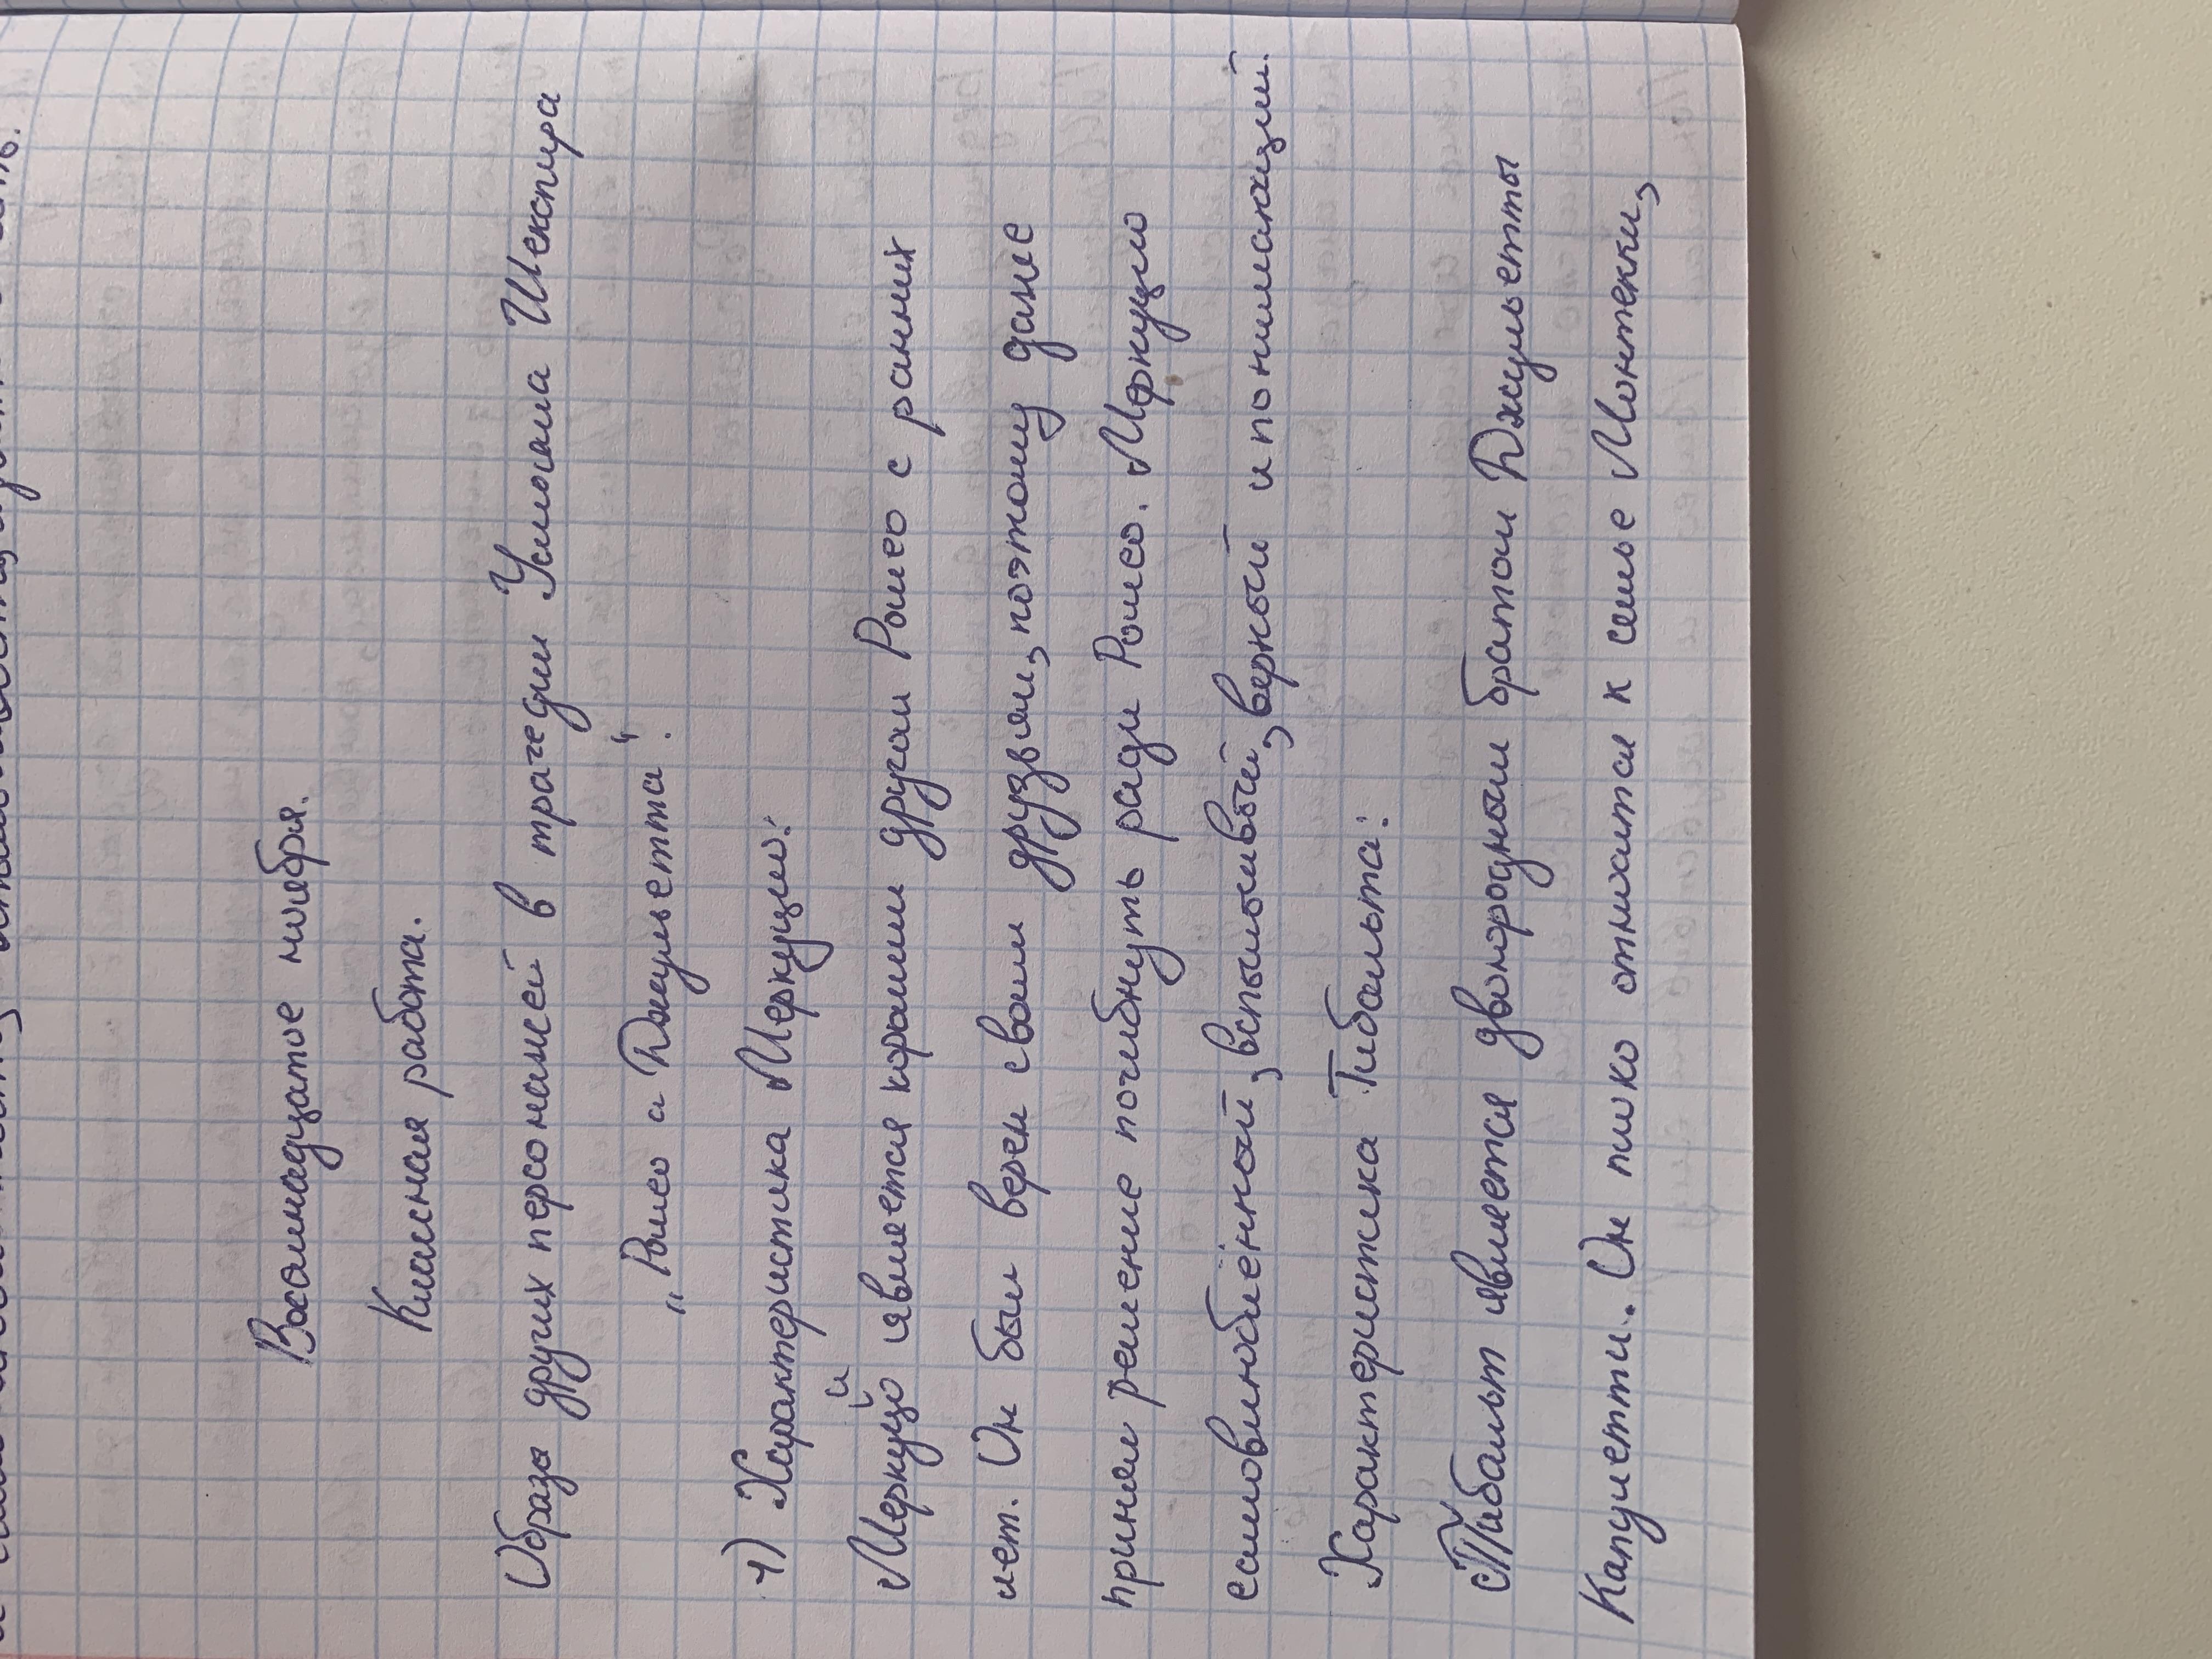 Восамнадцатое ноября.
Класная работа.
Образы других персонажей в трагедии Уильяма Шекспира
„Ромео и Джульетта".
1) Характеристика Меркуцио:
Меркуцио является хорошим другом Ромео с ранних
лет. Он был верен своим друзьям, поэтому даже
принял решение погибнуть ради Ромео. Меркуцио
самовлюблённый, вспыльчивый, верный и понимающий.
Характеристика Тибальта:
Тибальт является двоюродным братом Джульетты
Капулетти. Он плохо относится к семье Монтекки,